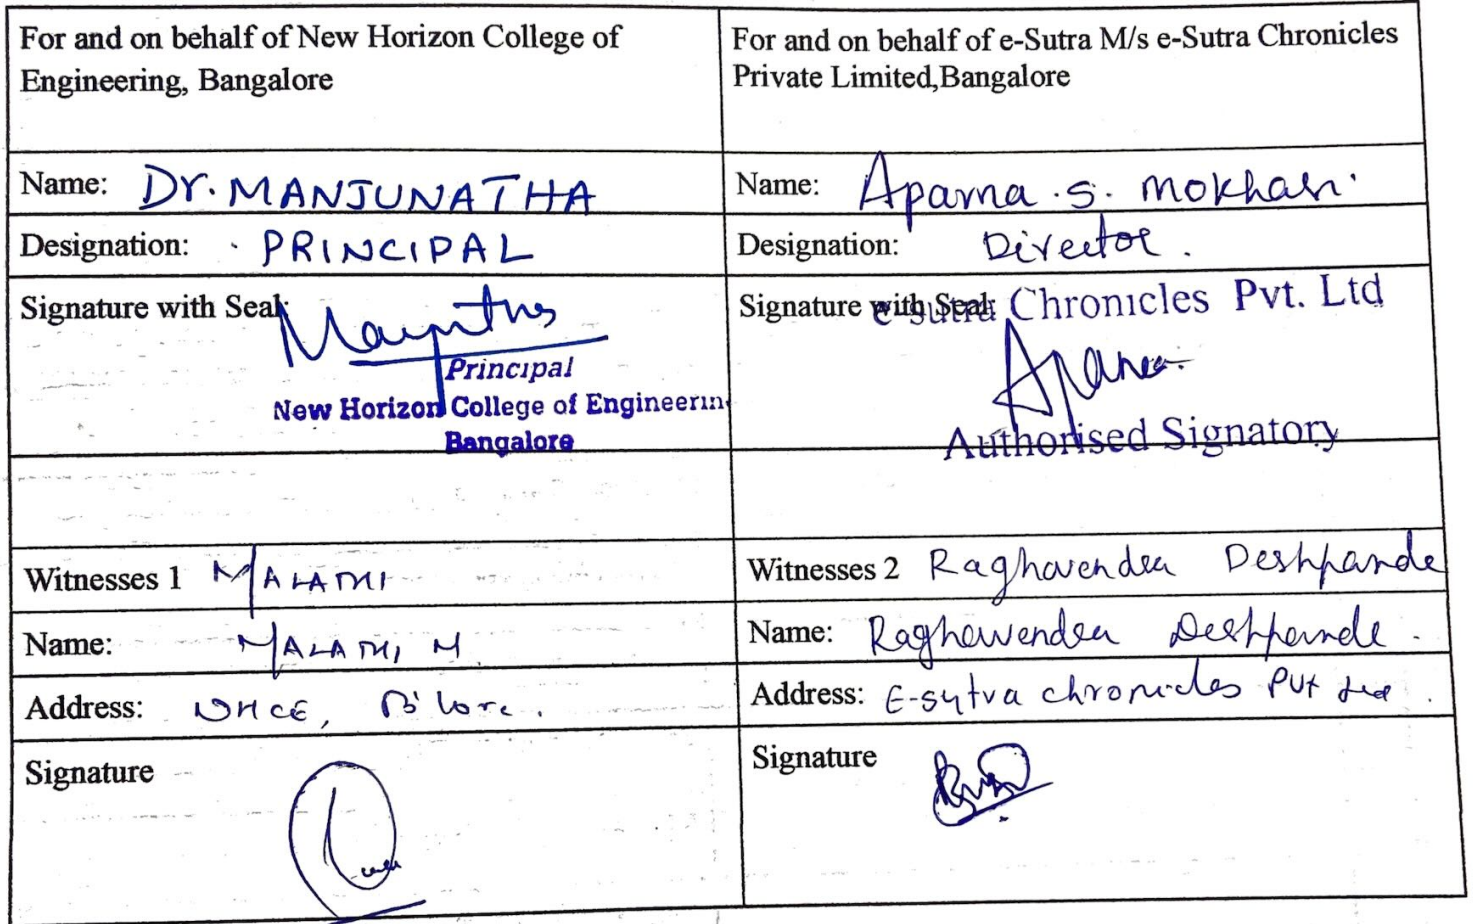 For and on behalf of New Horizon College of
Engineering, Bangalore
For and on behalf of e-Sutra M/s e-Sutra Chronicles
Private Limited,Bangalore
Name: Dr. MANJUNATHA
Name: Aparna .S. Mokhasi.
Designation: PRINCIPAL
Designation: Director.
Signature with Seal:
Principal
New Horizon College of Engineerin
Bangalore
Signature with Seal:
e-sutra Chronicles Pvt. Ltd
Aparna
Authorised Signatory
Witnesses 1 MALATHI
Witnesses 2 Raghavendra Deshpande
Name: MALATHI M
Name: Raghavendra Deshpande.
Address: NHCE, B'lore.
Address: E-sutra chronicles Pvt Ltd.
Signature
Signature